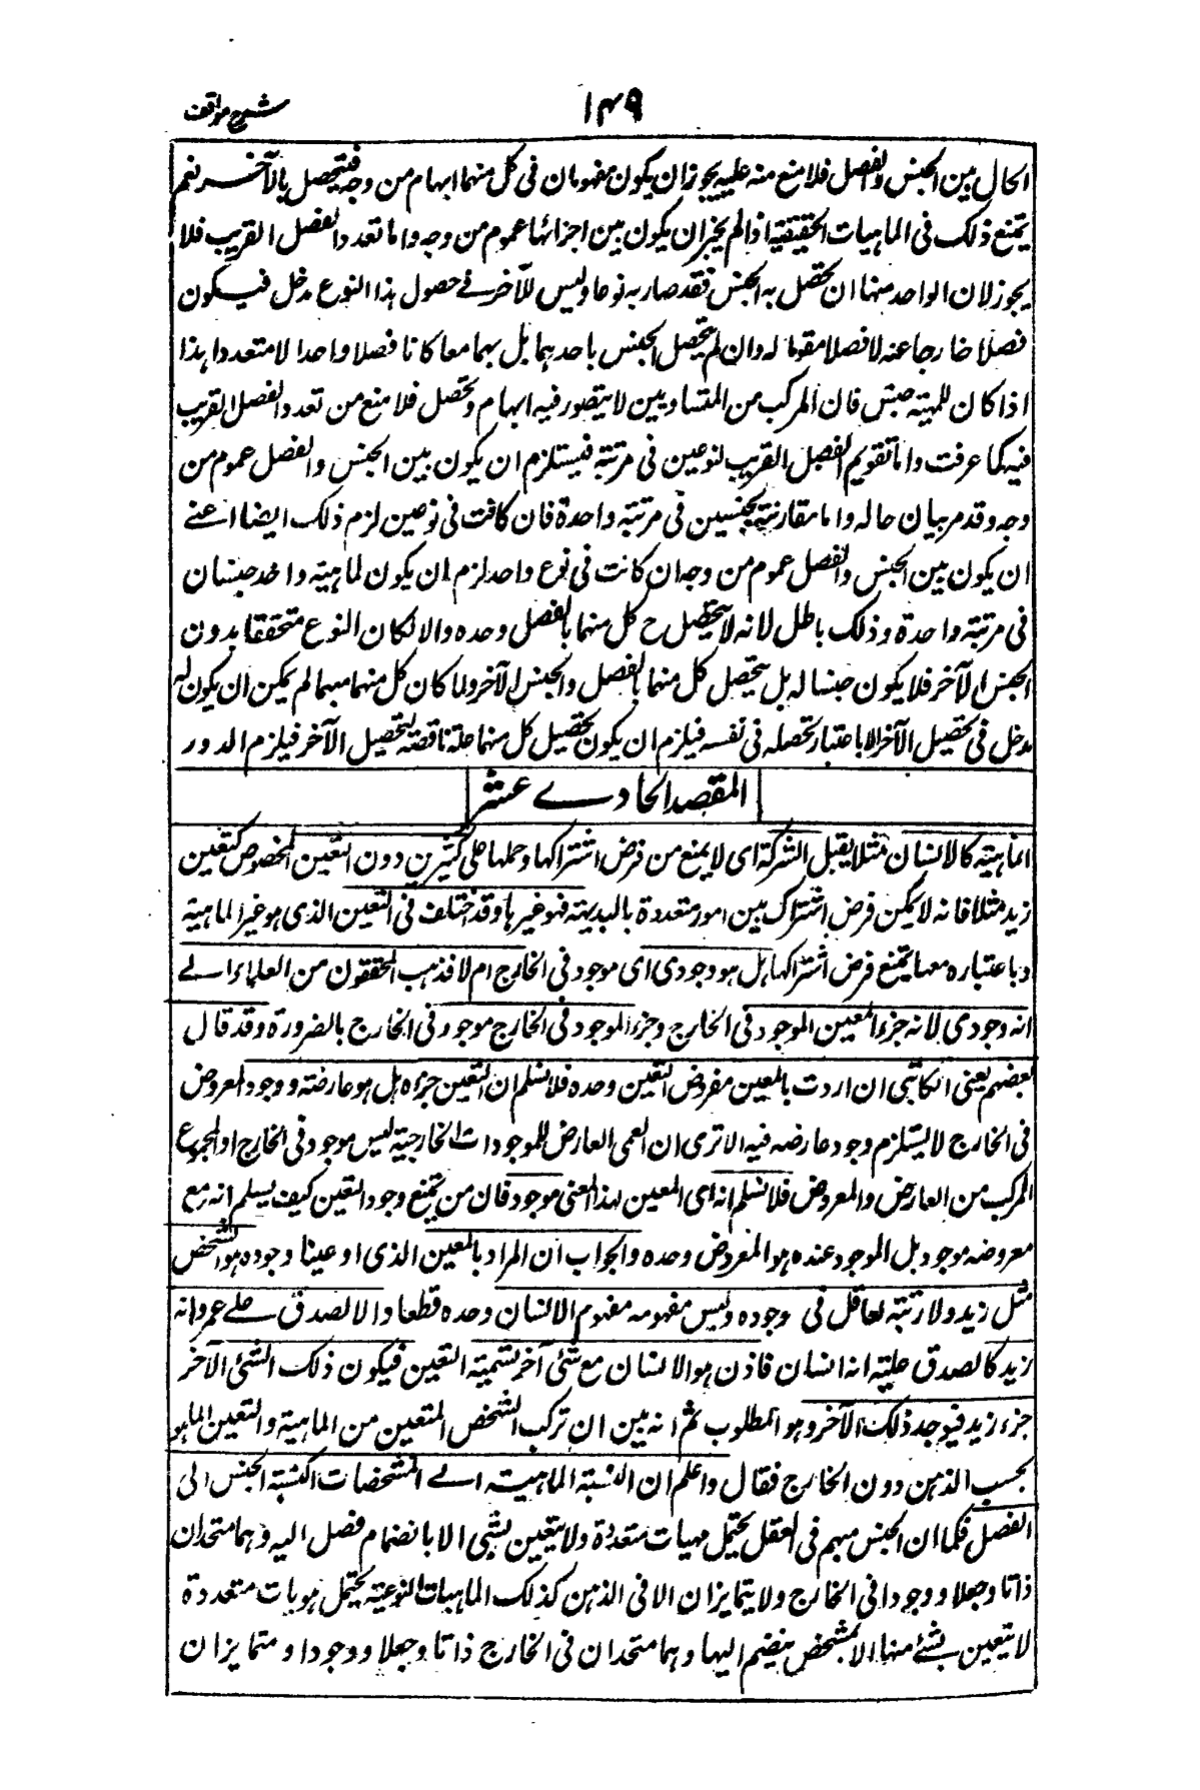 شرح مواقف
١٤٩
الحال بين الجنس والفصل فلا منع منه عليه يجوز ان يكون مفهومان فى كل منهما ابهام من وجه فيتحصل بالآخر نعم
يمتنع ذلك فى الماهيات الحقيقية اذا لم يجز ان يكون بين اجزائها عموم من وجه واما تعدد الفصل القريب فلا
يجوز لان الواحد منها ان تحصل به الجنس فقد صار به نوعا وليس للآخر فے حصول هذا النوع مدخل فيكون
فصلا خارجا عنه لا فصلا مقوما له وان لم يتحصل الجنس باحدهما بل بهما معا كانا فصلا واحدا لا متعددا هذا
اذا كان للمهية جنس فان المركب من المتساويين لا يتصور فيه ابهام وتحصل فلا منع من تعدد الفصل القريب
فيه كما عرفت واما تقويم الفصل القريب لنوعين فى مرتبة فيستلزم ان يكون بين الجنس والفصل عموم من
وجه وقد مر بيان حاله واما مقارنته بجنسين فى مرتبة واحدة فان كانت فى نوعين لزم ذلك ايضا اعنے
ان يكون بين الجنس والفصل عموم من وجه ان كانت فى نوع واحد لزم ان يكون لماهية واحد جنسان
فى مرتبة واحدة وذلك باطل لانه لا يتحصل ح كل منهما بالفصل وحده والا لكان النوع متحققا بدون
الجنس الآخر فلا يكون جنسا له بل يتحصل كل منهما بالفصل والجنس الآخر ولما كان كل منهما مبهما لم يمكن ان يكون له
مدخل فى تحصيل الآخر الا باعتبار تحصله فى نفسه فيلزم ان يكون تحصيل كل منهما علة ناقصة لتحصيل الآخر فيلزم الدور
المقصد الحادے عشر
الماهية كالانسان مثلا يقبل الشركة اى لا يمنع من فرض اشتراكها وحملها على كثيرين دون التعين المخصوص كتعين
زيد مثلا فانه لا يمكن فرض اشتراك بين امور متعددة بالبديهة فهو غيرها وقد اختلف فى التعين الذى هو غير الماهية
وباعتباره معها يمتنع فرض اشتراكها هل هو وجودى اى موجود فى الخارج ام لا فذهب المحققون من العلماء الے
انه وجودى لانه جزء المعين الموجود فى الخارج وجزء الموجود فى الخارج موجود فى الخارج بالضرورة وقد قال
بعضهم يعنى الكاتبى ان اردت بالمعين مفروض التعين وحده فلا نسلم ان التعين جزءه بل هو عارضه ووجود المعروض
فى الخارج لا يستلزم وجود عارضه فيه الا ترى ان العمى العارض للموجودات الخارجية ليس موجود فى الخارج او المجموع
المركب من العارض والمعروض فلا نسلم انه اى المعين بهذا المعنى موجود فان من يمنع وجود التعين كيف يسلم انه مع
معروضه موجود بل الموجود عنده هو المعروض وحده والجواب ان المراد بالمعين الذى ادعينا وجوده هو الشخص
مثل زيد ولا ريبة لعاقل فى وجوده وليس مفهومه مفهوم الانسان وحده قطعا والا لصدق علے عمرو انه
زيد كما لصدق عليه انه انسان فاذن هو الانسان مع شئ آخر نسميه التعين فيكون ذلك الشئ الآخر
جزء زيد فيوجد ذلك الآخر وهو المطلوب ثم انه بين ان تركب الشخص المتعين من الماهية والتعين انما هو
بحسب الذهن دون الخارج فقال واعلم ان النسبة الماهية الے المشخصات كنسبة الجنس الى
الفصل فكما ان الجنس مبهم فى العقل يحتمل مهيات متعددة ولا يتعين بشئ الا بانضمام فصل اليه وهما متحدان
ذاتا وجعلا ووجودا فى الخارج ولا يتمايزان الا فى الذهن كذلك الماهيات النوعية يحتمل هويات متعددة
لا يتعين بشئ منها الا بمشخص ينضم اليها وهما متحدان فى الخارج ذاتا وجعلا ووجودا ومتمايزان